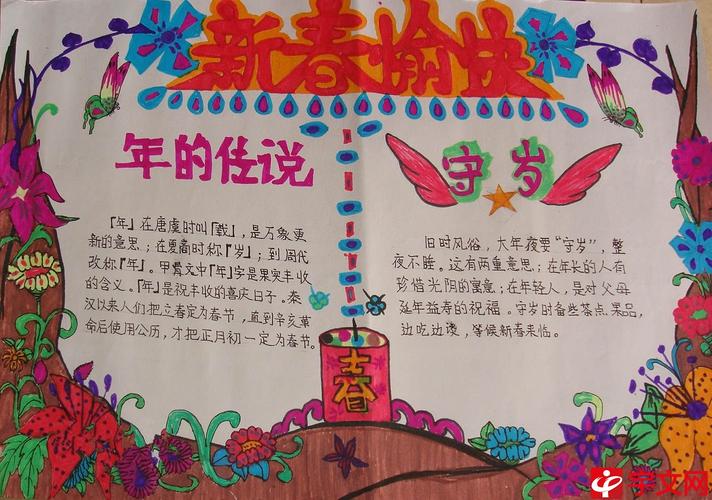 新春愉快
年的传说
「年」在唐虞时叫「载」，是万象更
新的意思；在夏商时称「岁」；到周代
改称「年」。甲骨文中「年」字是果实丰收
的含义。「年」是祝丰收的喜庆日子。秦
汉以来人们把立春定为春节，直到辛亥革
命后使用公历，才把正月初一定为春节。
守岁
旧时风俗，大年夜要“守岁”，整
夜不睡。这有两重意思；在年长的人有
珍惜光阴的寓意；在年轻人，是对父母
延年益寿的祝福。守岁时备些茶点、果品，
边吃边谈，等候新春来临。
春
学文网